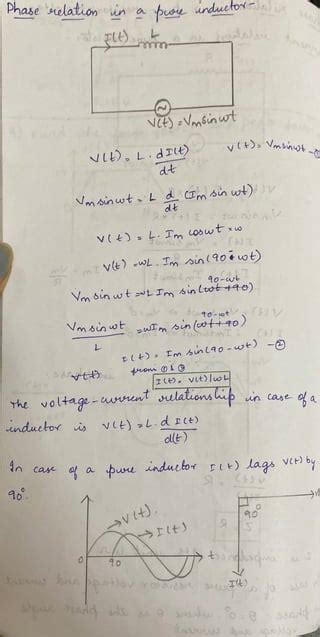 Phase relation in a pure inductor-
I(t) L
V(t) = Vm sin wt
V(t) = L. dI(t)/dt V(t) = Vm sin wt -①
Vm sin wt = L d/dt (Im sin wt)
V(t) = L. Im cos wt × w
V(t) = wL. Im sin(90 - wt)
90-wt
Vm sin wt = wL Im sin(wt+90)
90-wt
Vm sin wt/L = wIm sin(wt+90)
I(t) = Im sin(90 - wt) -②
V(t) from ① & ②
I(t) = V(t)/wL
The voltage-current relationship in case of a
inductor is V(t) = L. d I(t)/d(t)
In case of a pure inductor I(t) lags V(t) by
90°.
V(t)
I(t)
0 90 t
90°
I(t)